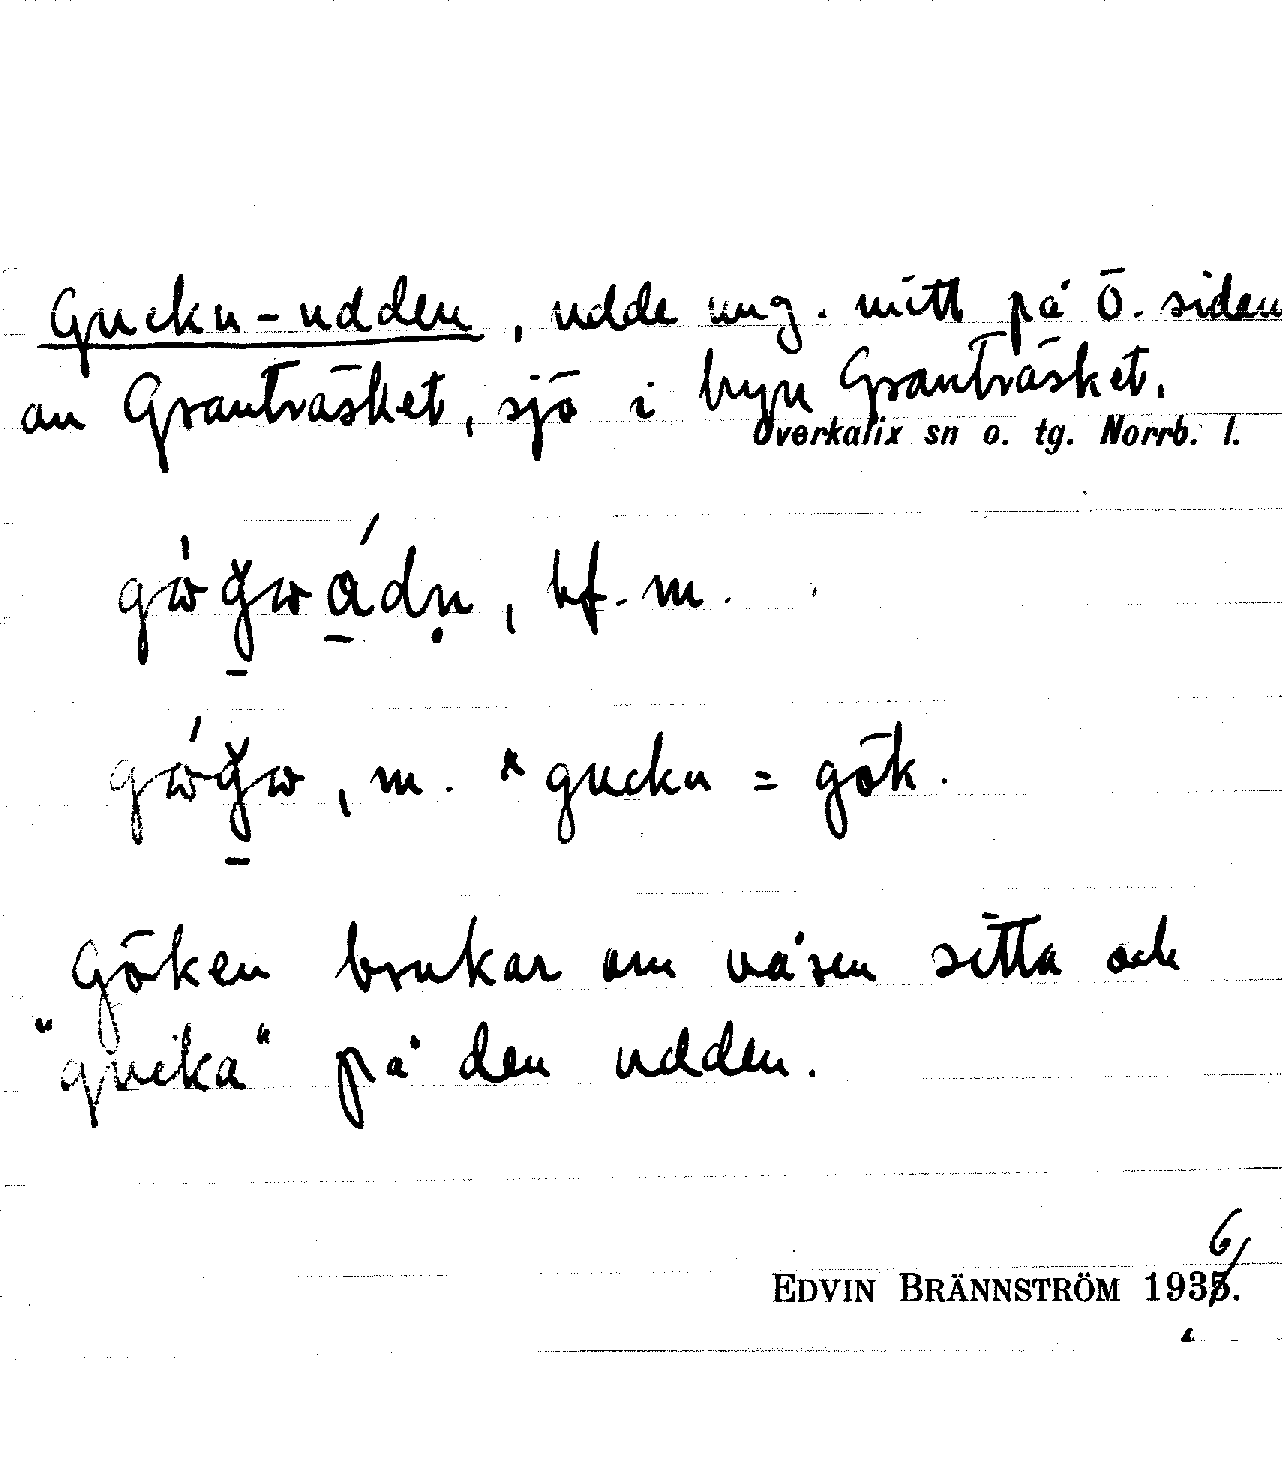 Gucku-udden, udde ung. mitt på Ö. siden
av Granträsket, sjö i byn Granträsket.
Överkalix sn o. tg. Norrb. l.
bf. m.
m. *gucku = gök.
Göken brukar om våren sitta och
"gucka" på den udden.
EDVIN BRÄNNSTRÖM 1936.